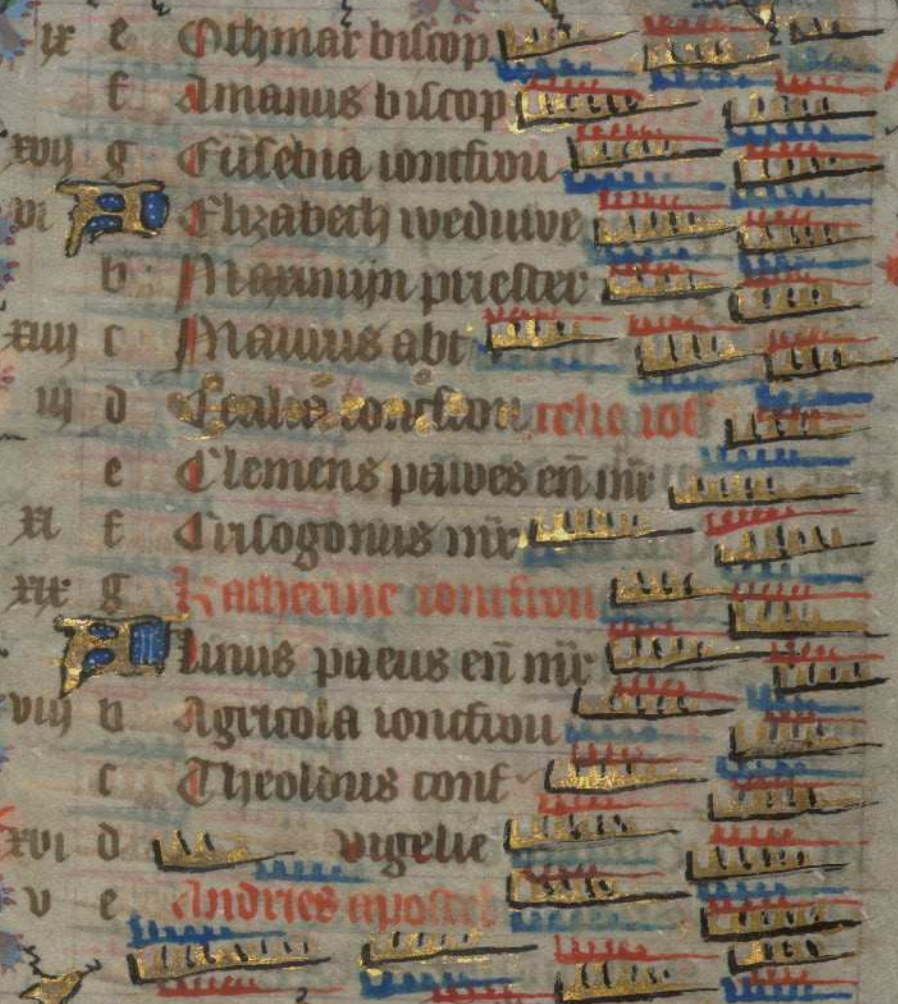 ix e Othmar biscop
f Amanus biscop
xvii g Eusebia ioncfrou
vi A Elizabeth weduwe
b Maximijn priester
xiiii c Maurus abt
iii d Cecilia ioncfrou
e Clemens pawes en̄ mr̄
xi f Crisogonus mr̄
xix g Katherine ioncfrou
A Linus paeus en̄ mr̄
viii b Agricola ioncfrou
c Theoldus conf
xvi d vigelie
v e Andries apostel